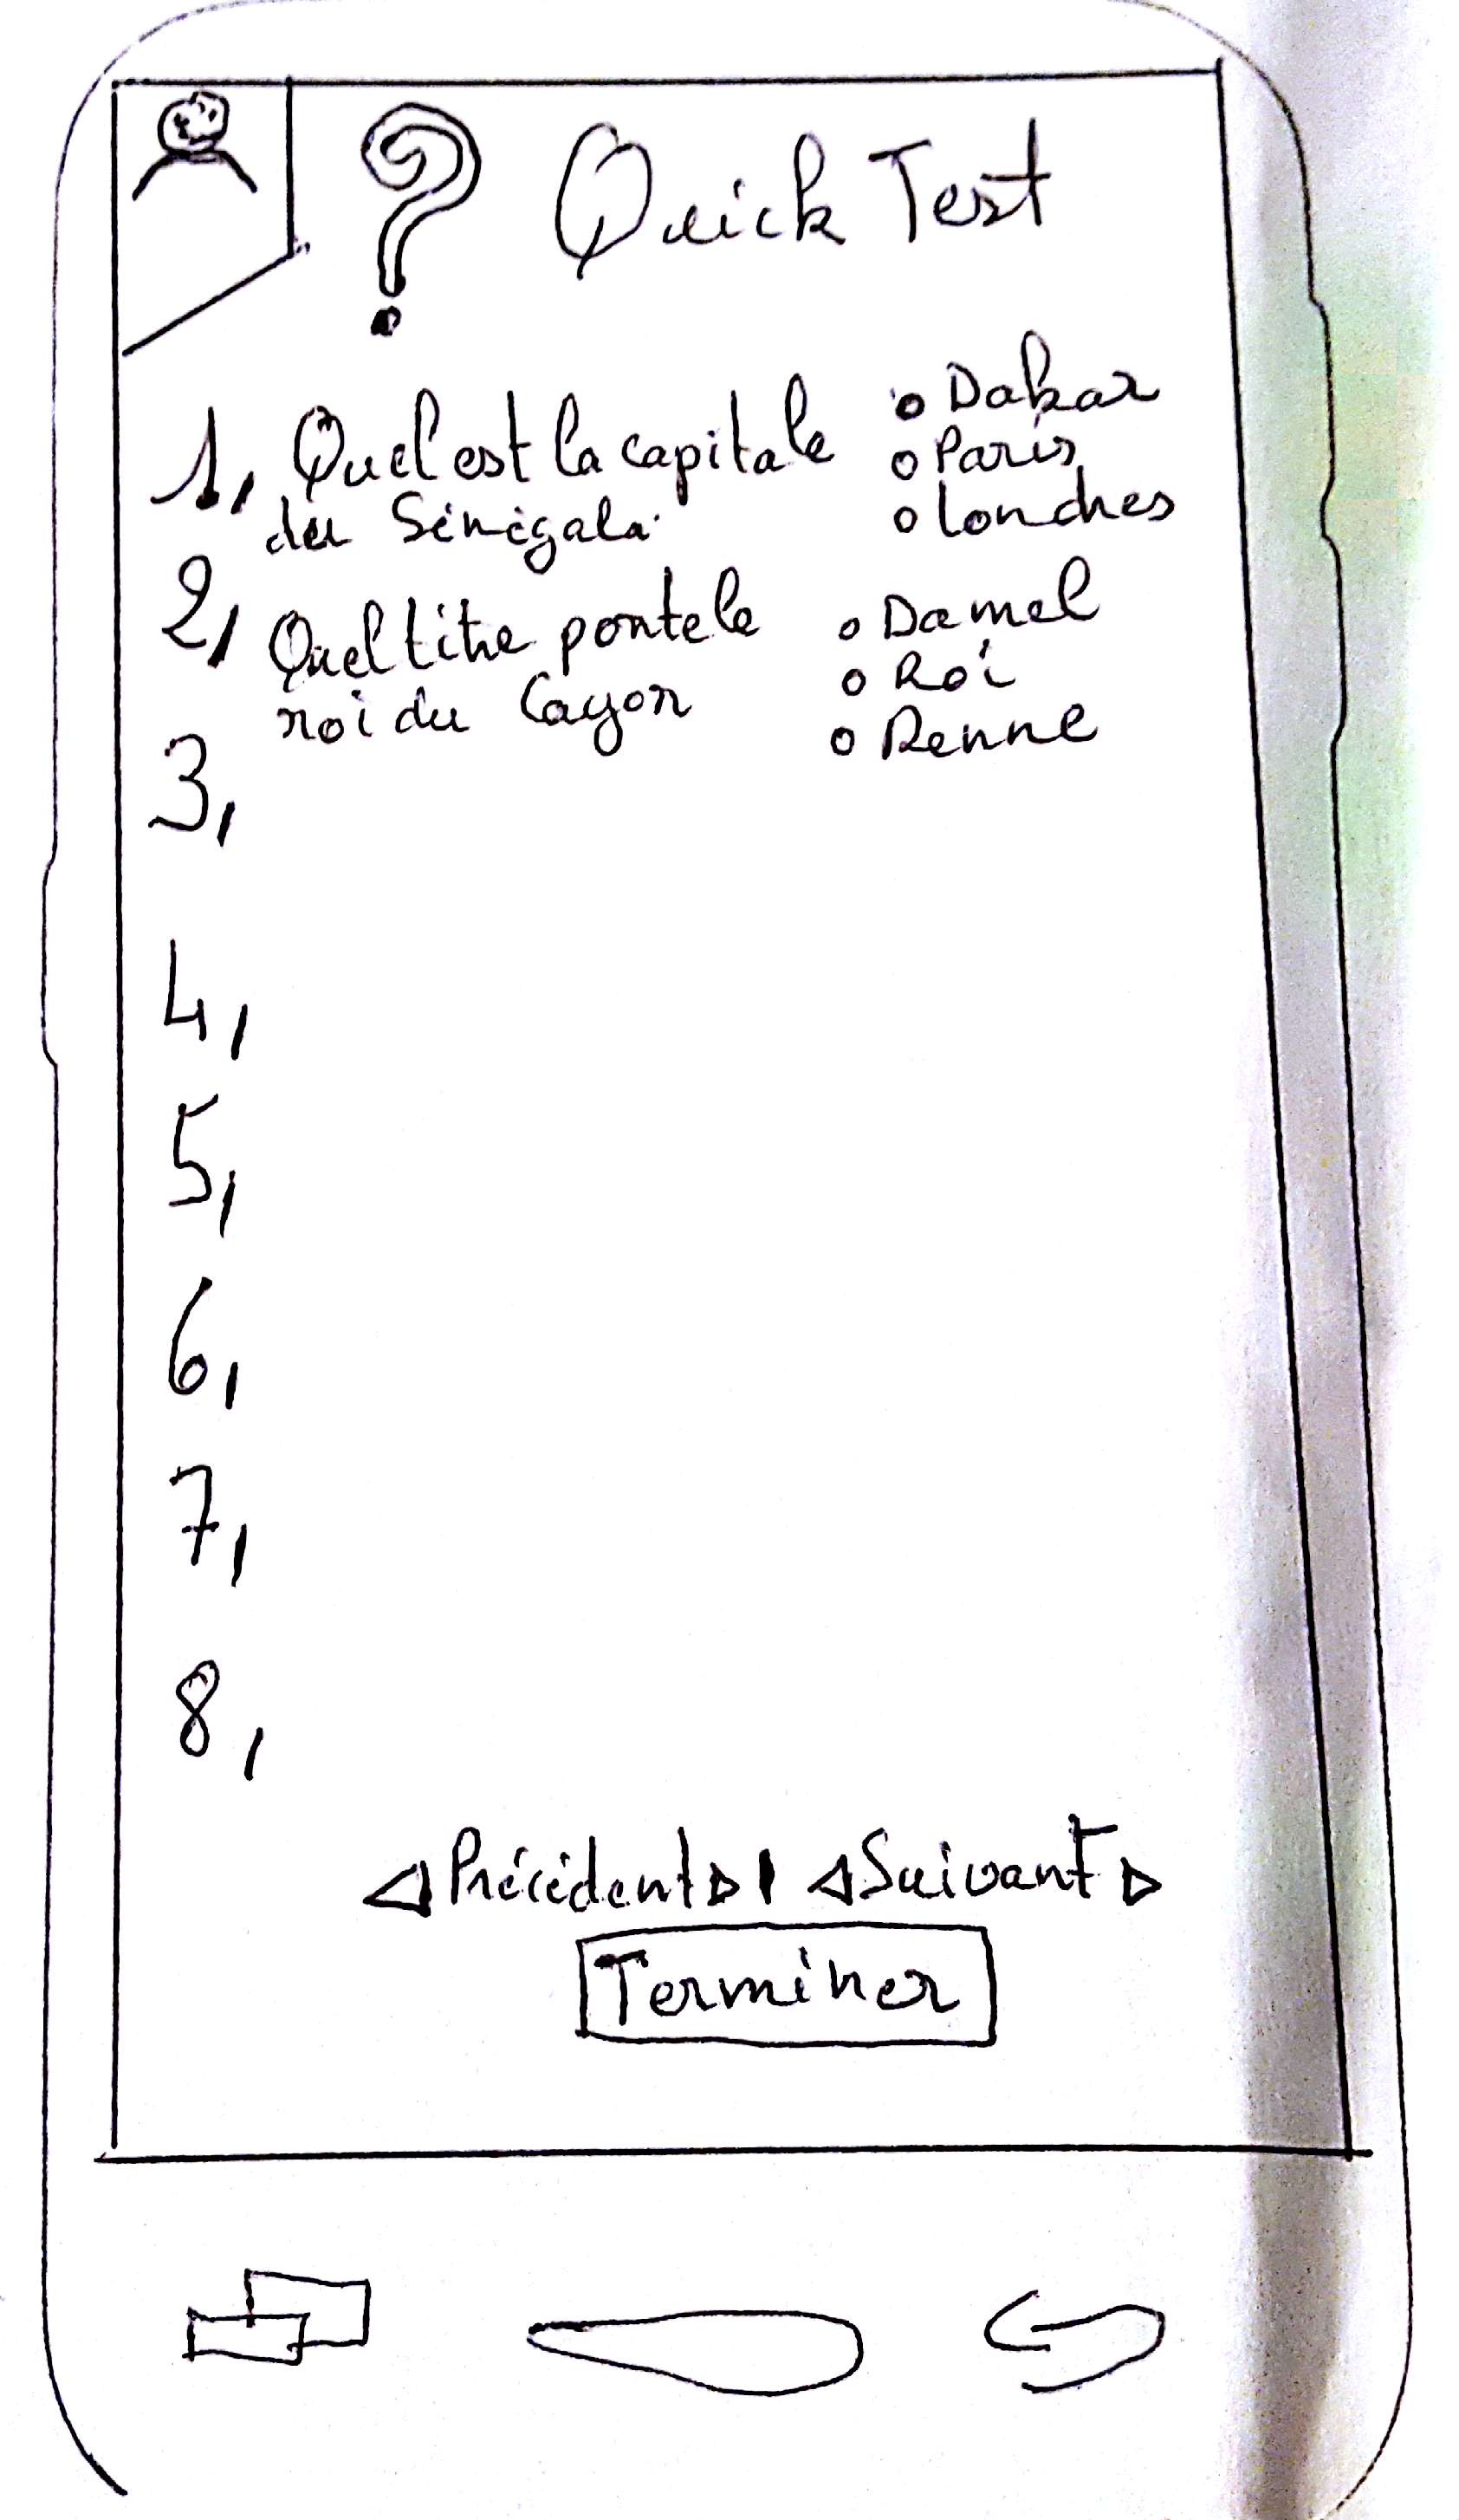 ? Quick Test
1, Quel est la capitale
du Sénégala
o Dakar
o Paris
o Londres
2, Quel titre porte le
roi du Cayor
o Damel
o Roi
o Renne
3,
4,
5,
6,
7,
8,
◁ Précédent ▷ | ◁ Suivant ▷
Terminer